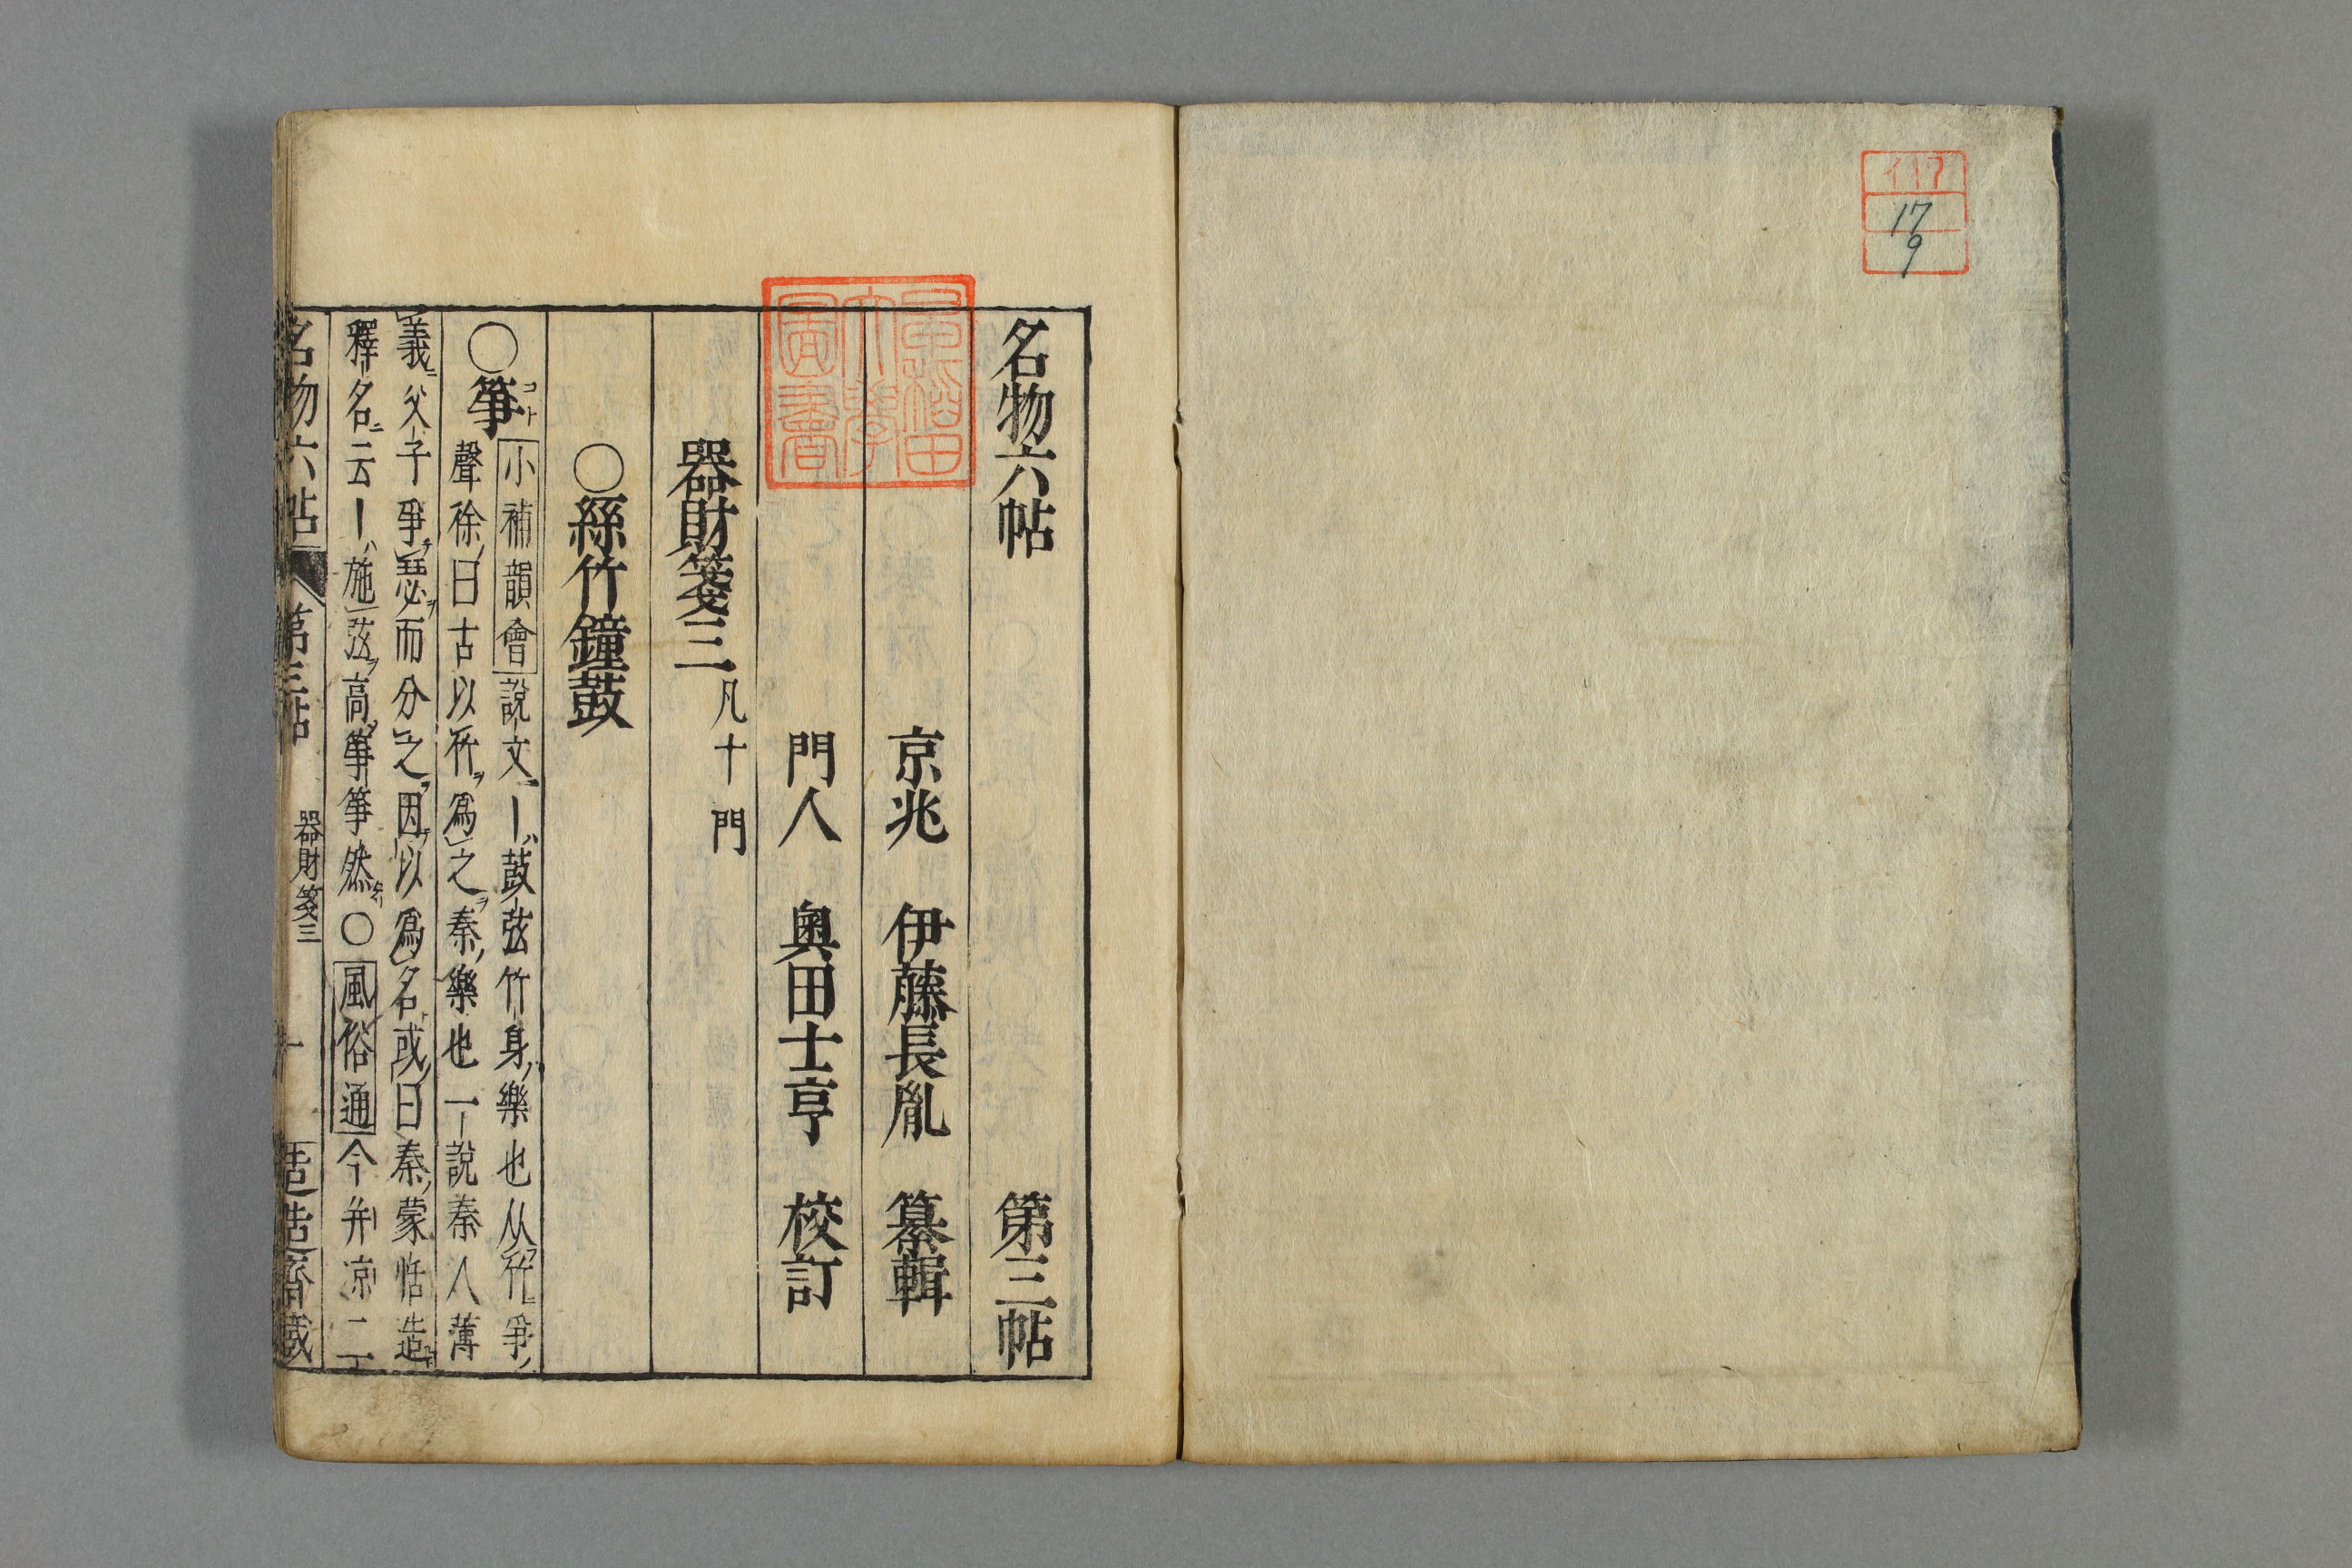 イ17
17
9
名物六帖 第三帖
京兆 伊藤長胤 纂輯
門人 奥田士亨 校訂
早稲田大學圖書
器財箋三 凡十門
○絲竹鐘鼓
○箏コト 小補韻會說文ー鼓弦竹身樂也从竹爭
聲徐曰古以竹爲之秦樂也一說秦人薄
義父子爭瑟而分之因以爲名或曰秦蒙恬造
釋名云ー施弦高箏箏然○風俗通今并涼二
名物六帖 第三帖 器財箋三 一